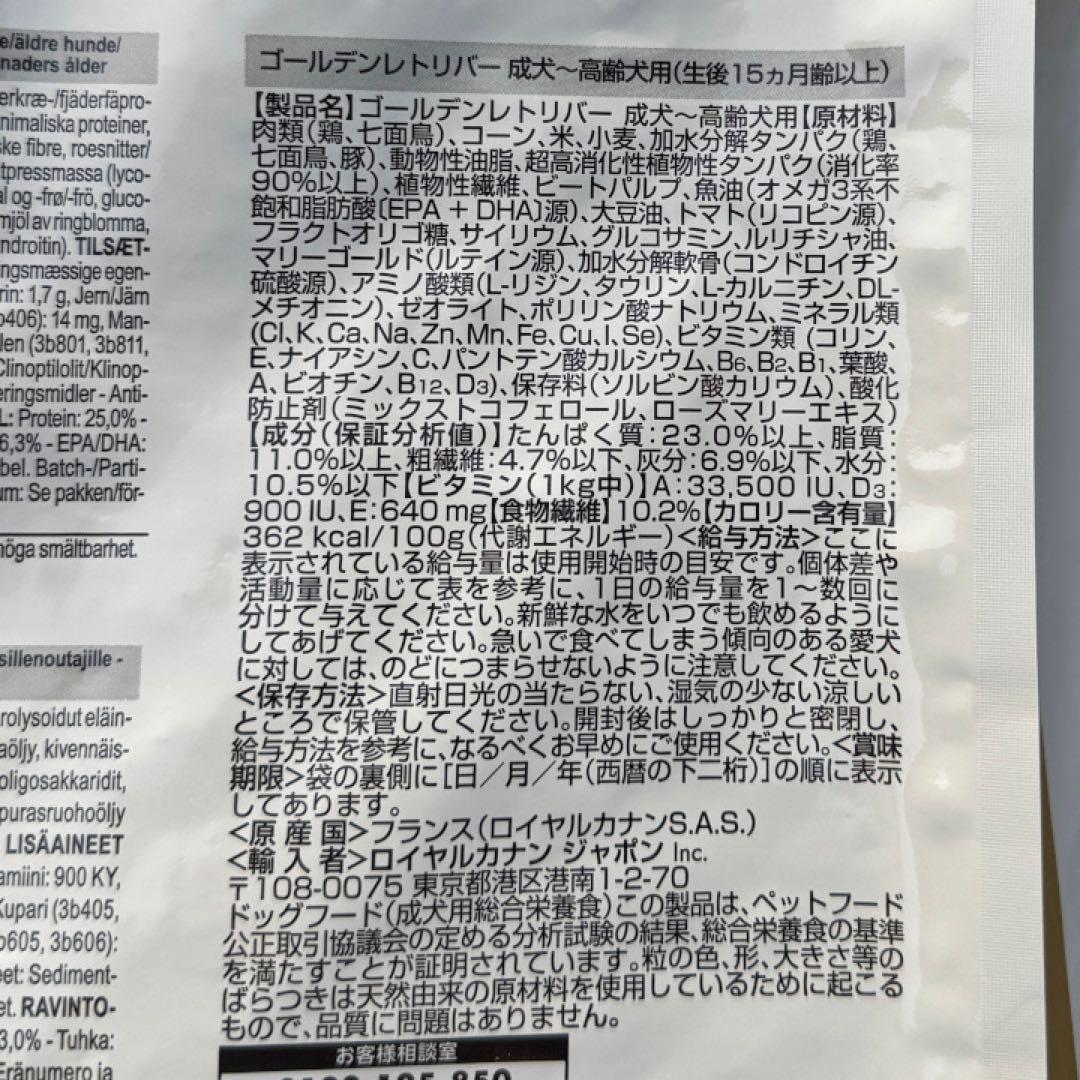 e/äldre hunde/
naders ålder
erkræ-/fjäderfäpro-
nimaliska proteiner,
ke fibre, roesnitter/
tpressmassa (lyco-
al og -frø/-frö, gluco-
mjöl av ringblomma,
ndroitin). TILSÆT-
ngsmæssige egen-
rin: 1,7 g, Jern/Järn
b406): 14 mg, Man-
len (3b801, 3b811,
Clinoptilolit/Klinop-
eringsmidler - Anti-
L: Protein: 25,0% -
6,3% - EPA/DHA:
bel. Batch-/Parti-
um: Se pakken/för-
höga smältbarhet.
sillenoutajille -
rolysoidut eläin-
aöljy, kivennäis-
oligosakkaridit,
purasruohoöljy
LISÄAINEET
amiini: 900 KY,
Kupari (3b405,
b605, 3b606):
eet: Sediment-
et. RAVINTO-
3,0% - Tuhka:
Eränumero ja
ゴールデンレトリバー 成犬〜高齢犬用(生後15ヵ月齢以上)
【製品名】ゴールデンレトリバー 成犬〜高齢犬用【原材料】
肉類(鶏、七面鳥)、コーン、米、小麦、加水分解タンパク(鶏、
七面鳥、豚)、動物性油脂、超高消化性植物性タンパク(消化率
90%以上)、植物性繊維、ビートパルプ、魚油(オメガ3系不
飽和脂肪酸〔EPA + DHA〕源)、大豆油、トマト(リコピン源)、
フラクトオリゴ糖、サイリウム、グルコサミン、ルリチシャ油、
マリーゴールド(ルテイン源)、加水分解軟骨(コンドロイチン
硫酸源)、アミノ酸類(L-リジン、タウリン、L-カルニチン、DL-
メチオニン)、ゼオライト、ポリリン酸ナトリウム、ミネラル類
(Cl、K、Ca、Na、Zn、Mn、Fe、Cu、I、Se)、ビタミン類 (コリン、
E、ナイアシン、C、パントテン酸カルシウム、B6、B2、B1、葉酸、
A、ビオチン、B12、D3)、保存料(ソルビン酸カリウム)、酸化
防止剤(ミックストコフェロール、ローズマリーエキス)
【成分(保証分析値)】たんぱく質:23.0%以上、脂質:
11.0%以上、粗繊維:4.7%以下、灰分:6.9%以下、水分:
10.5%以下【ビタミン(1kg中)】A:33,500 IU、D3:
900 IU、E:640 mg【食物繊維】10.2%【カロリー含有量】
362 kcal/100g(代謝エネルギー)<給与方法>ここに
表示されている給与量は使用開始時の目安です。個体差や
活動量に応じて表を参考に、1日の給与量を1〜数回に
分けて与えてください。新鮮な水をいつでも飲めるように
してあげてください。急いで食べてしまう傾向のある愛犬
に対しては、のどにつまらせないように注意してください。
<保存方法>直射日光の当たらない、湿気の少ない涼しい
ところで保管してください。開封後はしっかりと密閉し、
給与方法を参考に、なるべくお早めにご使用ください。<賞味
期限>袋の裏側に[日/月/年(西暦の下二桁)]の順に表示
してあります。
<原 産 国>フランス(ロイヤルカナンS.A.S.)
<輸 入 者>ロイヤルカナン ジャポン Inc.
〒108-0075 東京都港区港南1-2-70
ドッグフード(成犬用総合栄養食)この製品は、ペットフード
公正取引協議会の定める分析試験の結果、総合栄養食の基準
を満たすことが証明されています。粒の色、形、大きさ等の
ばらつきは天然由来の原材料を使用しているために起こる
もので、品質に問題はありません。
お客様相談室